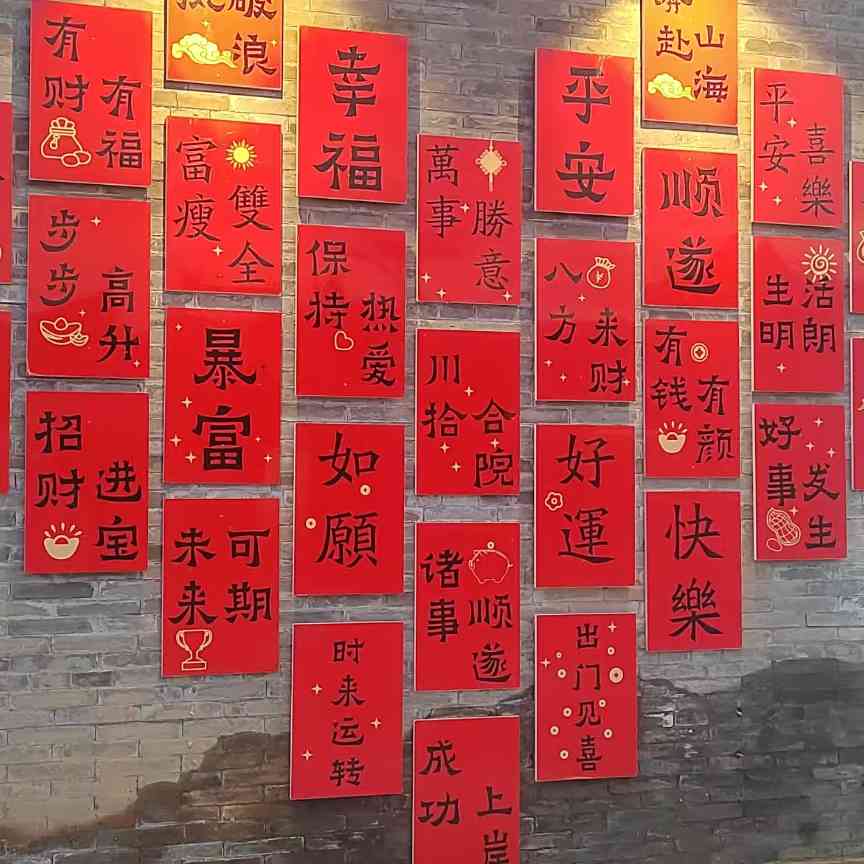 有财
有福
步步
高升
招财
进宝
破浪
富瘦
雙全
暴富
未来
可期
幸福
保持
热爱
如願
时来运转
萬事
勝意
川拾
合院
诸事
顺遂
成功
上岸
平安
八方
来财
好運
出门见喜
奔赴
山海
顺遂
有钱
有颜
快樂
平安
喜樂
生明
活朗
好事
发生